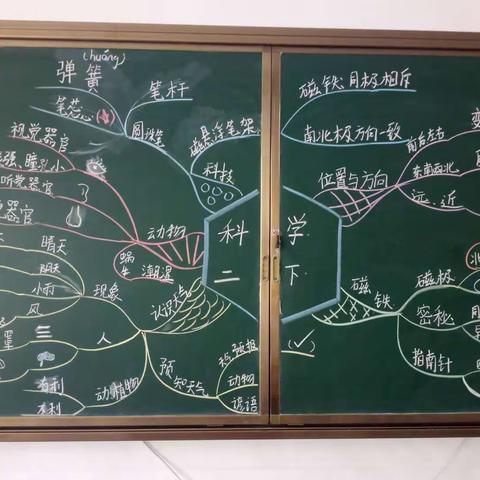 (huáng)
弹簧
笔杆
笔芯
圆珠笔
磁悬浮笔架
科技
视觉器官
瞳孔小
听觉器官
器官
动物
蜗牛
潮湿
晴天
阴天
小雨
风
现象
认识天气
人
有利
不利
动植物
预知天气
天气预报
动物
谚语
科学
二下
(✓)
磁铁同极相斥
南北极方向一致
位置与方向
前后左右
东南西北
远、近
磁铁
磁极
密秘
指南针